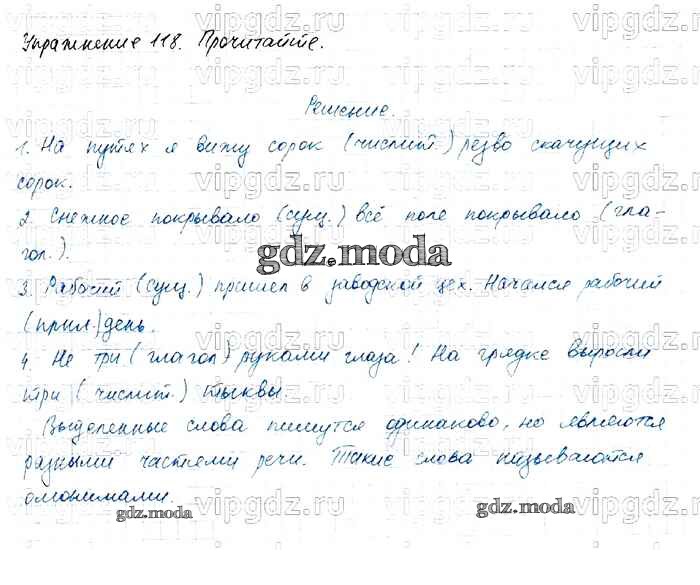 Упражнение 118. Прочитайте.
Решение.
1. На путях я вижу сорок (числит.) резво скачущих
сорок.
2. Снежное покрывало (сущ.) всё поле покрывало (гла-
гол.).
gdz.moda
3. Рабочий (сущ.) пришел в заводской цех. Начался рабочий
(прил.) день.
4. Не три (глагол) руками глаза! На грядке выросли
три (числит.) тыквы.
Выделенные слова пишутся одинаково, но являются
разными частями речи. Такие слова называются
омонимами.
gdz.moda gdz.moda
vipgdz.ru